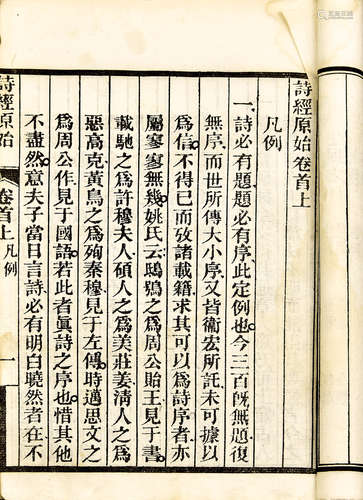 詩經原始卷首上
凡例
一詩必有題題必有序此定例也今三百旣無題復
無序而世所傳大小序又皆衞宏所託未可據以
為信不得已而攷諸載籍求其可以為詩序者亦
屬寥寥無幾姚氏云鴟鴞之為周公貽王見于書
載馳之為許穆夫人碩人之為美莊姜清人之為
惡高克黃鳥之為殉秦穆見于左傳時邁思文之
為周公作見于國語若此者眞詩之序也惜其他
不盡然意夫子當日言詩必有明白曉然者在不
詩經原始
卷首上
凡例
一